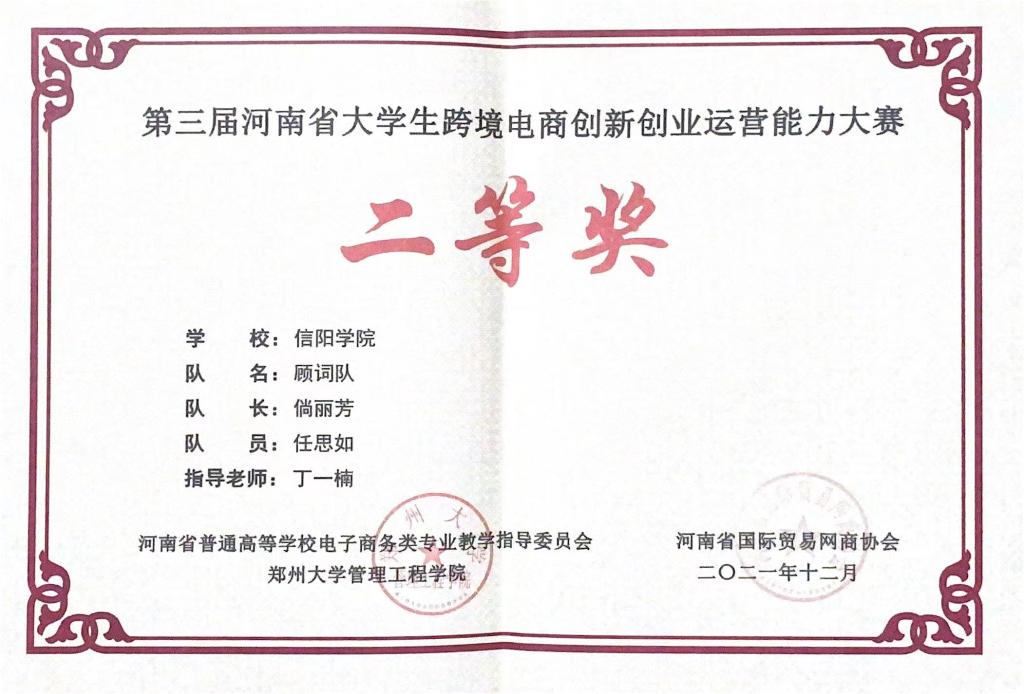 第三届河南省大学生跨境电商创新创业运营能力大赛
二等奖
学 校：信阳学院
队 名：顾词队
队 长：倘丽芳
队 员：任思如
指导老师：丁一楠
河南省普通高等学校电子商务类专业教学指导委员会
郑州大学管理工程学院
河南省国际贸易网商协会
二〇二一年十二月
郑州大学
管理工程学院